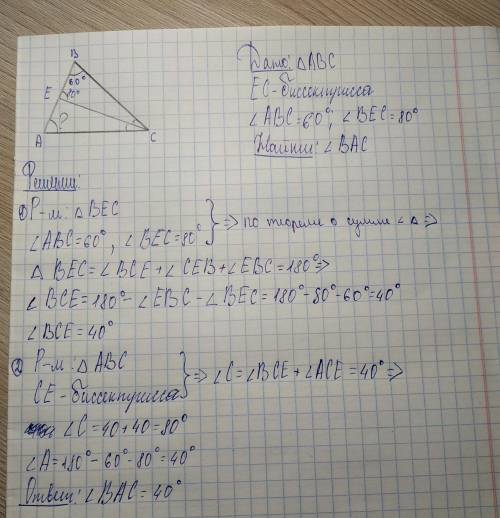 B
60°
E
80°
?
A
C
Дано: △ABC
EC-биссектриса
∠ABC=60°; ∠BEC=80°
Найти: ∠BAC
Решение:
① Р-м: △BEC
∠ABC=60°, ∠BEC=80° } ⇒ по теореме о сумме ∠ △ ⇒
△ BEC=∠BCE+∠CEB+∠EBC=180°⇒
∠BCE=180°-∠EBC-∠BEC=180°-80°-60°=40°
∠BCE=40°
② Р-м: △ABC
CE-биссектриса } ⇒ ∠C=∠BCE+∠ACE=40°⇒
∠C=40+40=80°
∠A=180°-60°-80°=40°
Ответ: ∠BAC=40°